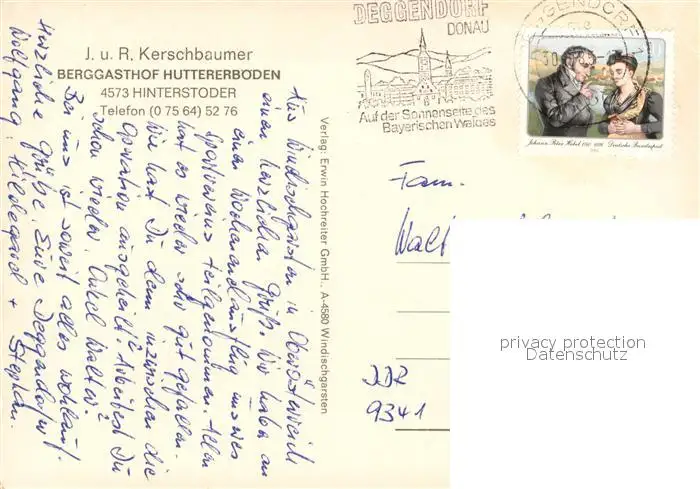 J. u. R. Kerschbaumer
BERGGASTHOF HUTTERERBÖDEN
4573 HINTERSTODER
Telefon (0 75 64) 52 76
DEGGENDORF
DONAU
Auf der Sonnenseite des
Bayerischen Waldes
Johann Peter Hebel 1760-1826 Deutsche Bundespost
Verlag: Erwin Hochreiter GmbH., A-4580 Windischgarsten
Aus Windischgarsten in Oberösterreich
einen herzlichen Gruß. Wir haben an
einem Wochenendausflug unseres
teilgenommen. Allen
hat es wieder sehr gut gefallen.
Wie hast Du denn inzwischen die
Operation ausgeheilt? Arbeitest Du
schon wieder, Onkel Walter?
Bei uns ist soweit alles wohlauf.
Herzliche Grüße Eure Deggendorfer
Wolfgang, Hildegard + Stephan.
Fam.
DDR
9341
privacy protection
Datenschutz